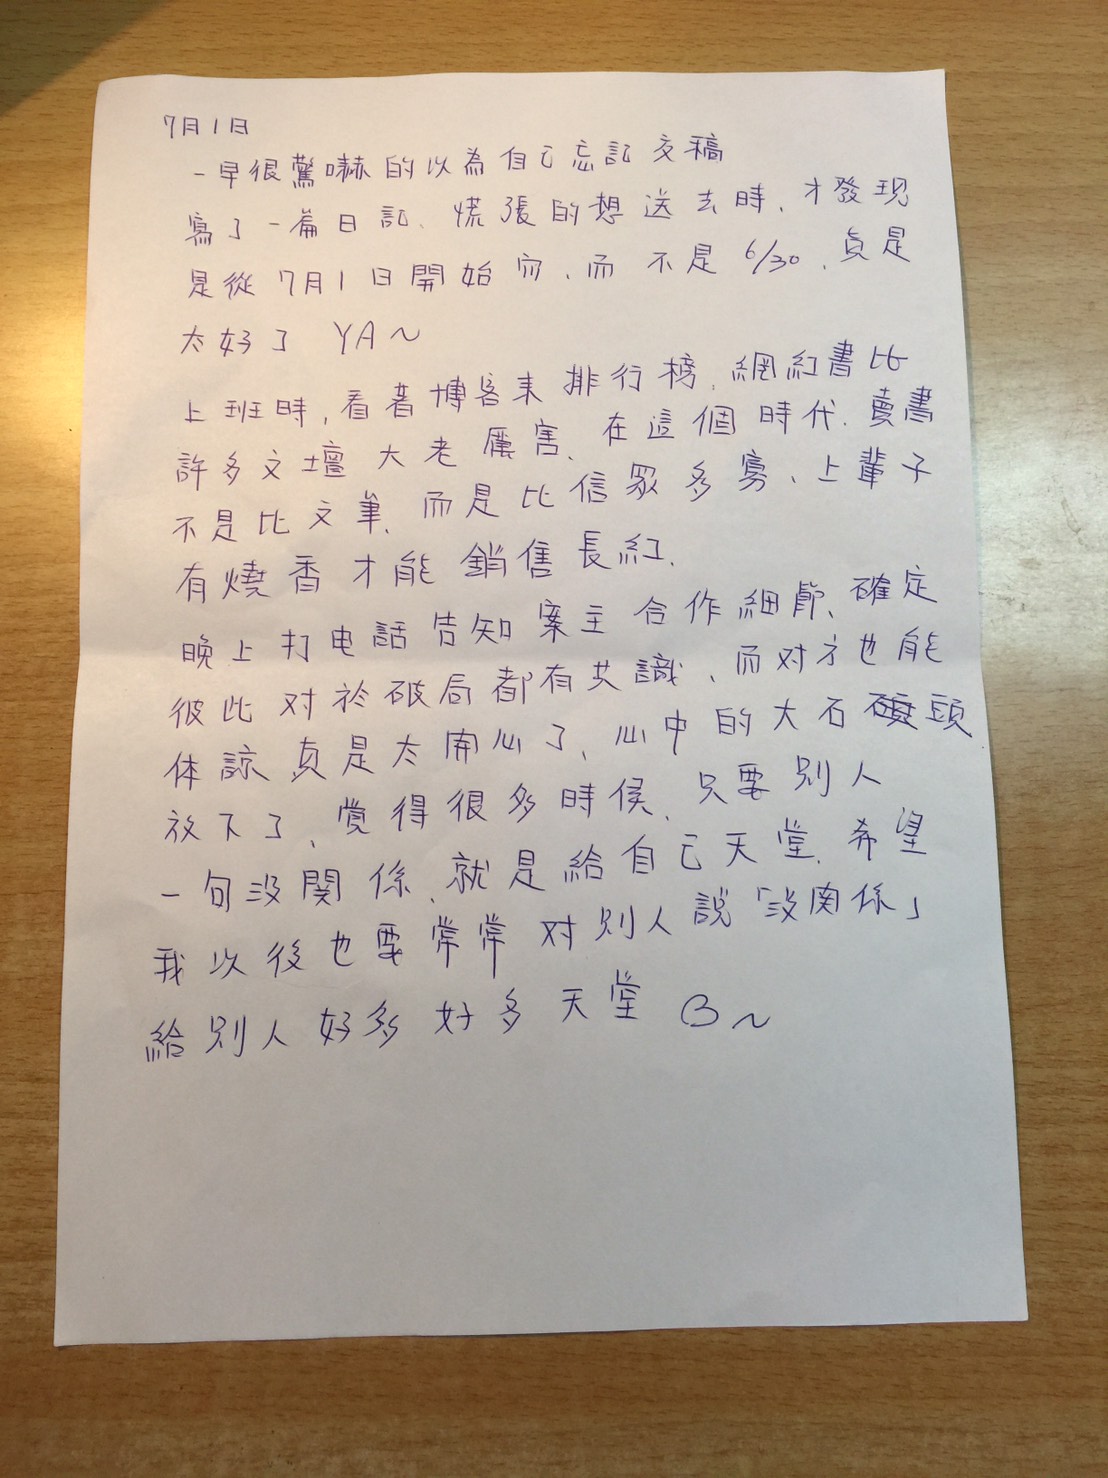 7月1日
一早很驚嚇的以為自己忘記交稿
寫了一篇日記、慌張的想送去時、才發現
是從7月1日開始而、而不是6/30、真是
太好了 YA～
上班時,看著博客來排行榜、網紅書比
許多文壇大老厲害、在這個時代、賣書
不是比文筆、而是比信眾多寡、上輩子
有燒香才能銷售長紅、
晚上打电話告知案主合作細節、確定
彼此对於破局都有共識、而对方也能
体諒、真是太開心了、心中的大石頭
放下了、覺得很多時侯、只要別人
一句沒関係、就是給自己天堂、希望
我以後也要常常对別人說「沒関係」
給別人好多好多天堂 B～